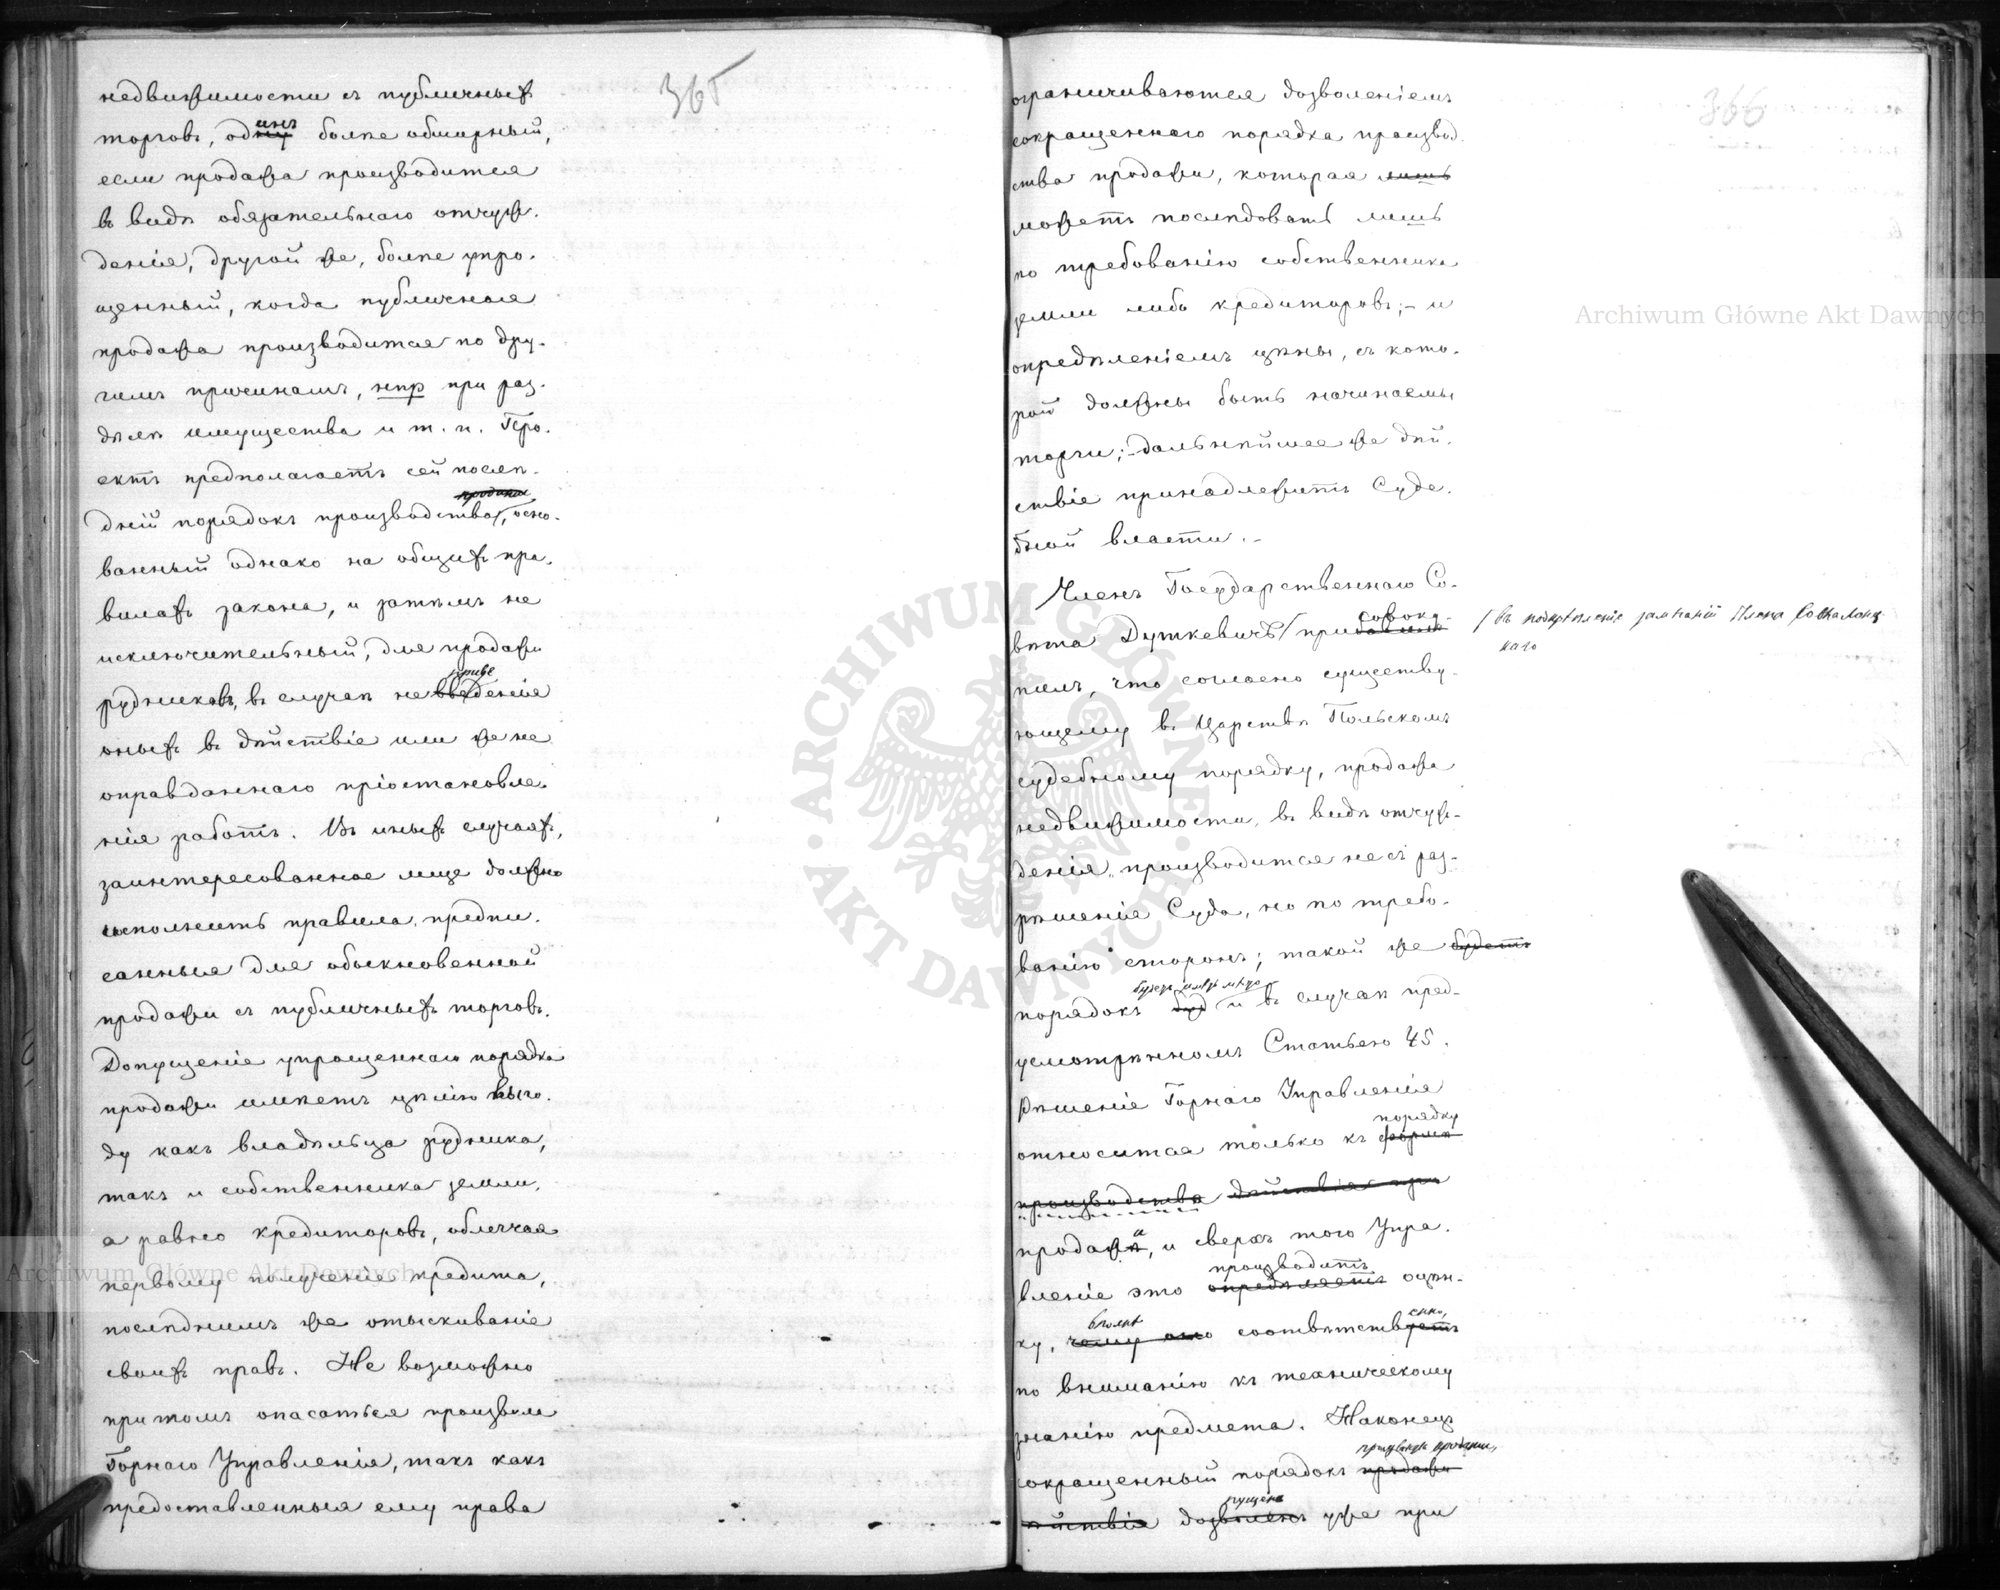 365
недвижимости съ публичныхъ
торговъ, одинъ болѣе обширный,
если продажа производится
въ видѣ обязательнаго отчуж-
денія, другой же, болѣе упро-
щенный, когда публичная
продажа производится по дру-
гимъ причинамъ, нпр при раз-
дѣлѣ имущества и т. п. Про-
ектъ предполагаетъ сей послѣ-
продажи
дній порядокъ производства, осно-
ванный однако на общихъ пра-
вилахъ закона, и затѣмъ не
исключительный, для продажи
рудниковъ, въ случаѣ неприведенія
оныхъ въ дѣйствіе или же не
оправданнаго пріостановле-
нія работъ. Въ иныхъ случаяхъ,
заинтересованное лице должно
исполнить правила, предпи-
санныя для обыкновенной
продажи съ публичныхъ торговъ.
Допущеніе упрощеннаго порядка
продажи имѣетъ цѣлію выго-
ду какъ владѣльца рудника,
такъ и собственника земли,
а равно кредиторовъ, облегчая
первому полученіе кредита,
послѣднимъ же отыскиваніе
своихъ правъ. Не возможно
притомъ опасаться произвола
Горнаго Управленія, такъ какъ
предоставленныя ему права
366
ограничиваются дозволеніемъ
сокращеннаго порядка производ-
ства продажи, которая лишь
можетъ послѣдовать лишь
по требованію собственника
земли либо кредиторовъ; – и
опредѣленіемъ цѣны, съ кото-
рой должны быть начинаемы
торги; – дальнѣйшее же дѣй-
ствіе принадлежитъ Суде-
бной власти. –
Членъ Государственнаго Со-
совоку-
вѣта Дуткевичъ / прибавилъ
/ въ подкрѣпленіе замѣчаній Члена
каго
пилъ, что согласно существу-
ющему въ Царствѣ Польскомъ
судебному порядку, продажа
недвижимости, въ видѣ отчуж-
денія, производится не съ раз-
рѣшенія Суда, но по требо-
ванію сторонъ; такой же будетъ
будетъ имѣть мѣсто
порядокъ буд и въ случаѣ пред-
усмотрѣнномъ Статьею 45.
Рѣшеніе Горнаго Управленія
порядку
относится только къ формѣ
производства дѣйствія при
продажи, и сверхъ того Упра-
производитъ
вленіе это опредѣляетъ оцѣн-
вполнѣ
ку, чему оно соотвѣтственно,
по вниманію къ техническому
знанію предмета. Наконецъ
производства продажи,
сокращенный порядокъ продажи
пущенъ
дѣйствія дозволенъ уже при
Archiwum Główne Akt Dawnych
Archiwum Główne Akt Dawnych
ARCHIWUM GŁÓWNE · AKT DAWNYCH ·